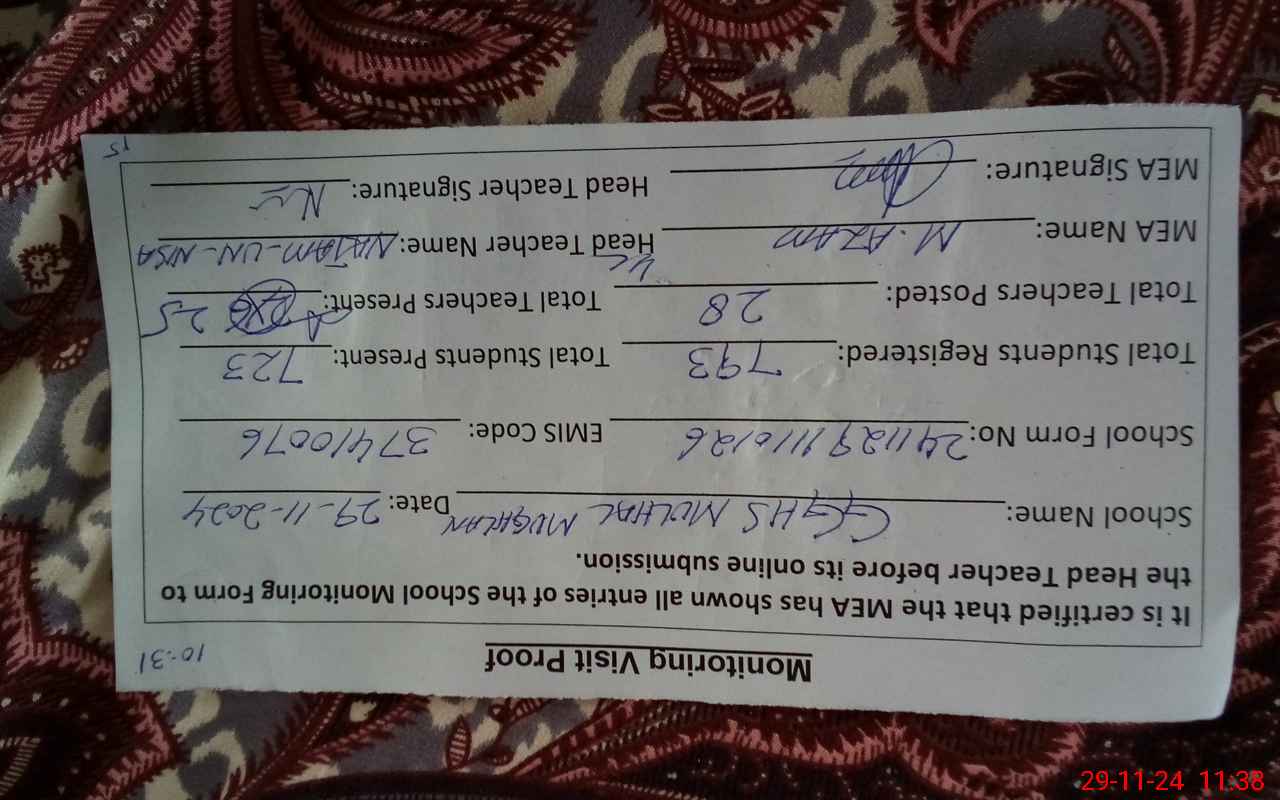 10-31
Monitoring Visit Proof
It is certified that the MEA has shown all entries of the School Monitoring Form to
the Head Teacher before its online submission.
School Name: GGHS MULHAL MUGHLAN Date: 29-11-2024
School Form No: EMIS Code: 37410076
Total Students Registered: 793 Total Students Present: 723
Total Teachers Posted: 28 Total Teachers Present: 25
MEA Name: M. AZAM Head Teacher Name: NAJAM-UN-NISA
MEA Signature: Head Teacher Signature:
15
29-11-24 11:38